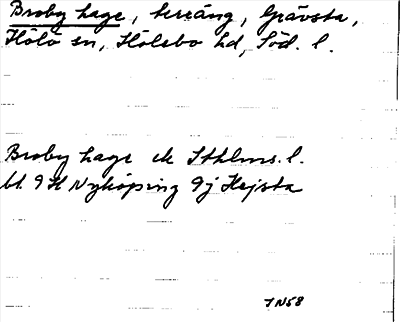 Broby hage, terräng, Grävsta,
Hölö sn, Hölebo hd, Söd. l.
Broby hage ek Sthlms. l.
bl. 9H Nyköping 9j Hejsta
IN58